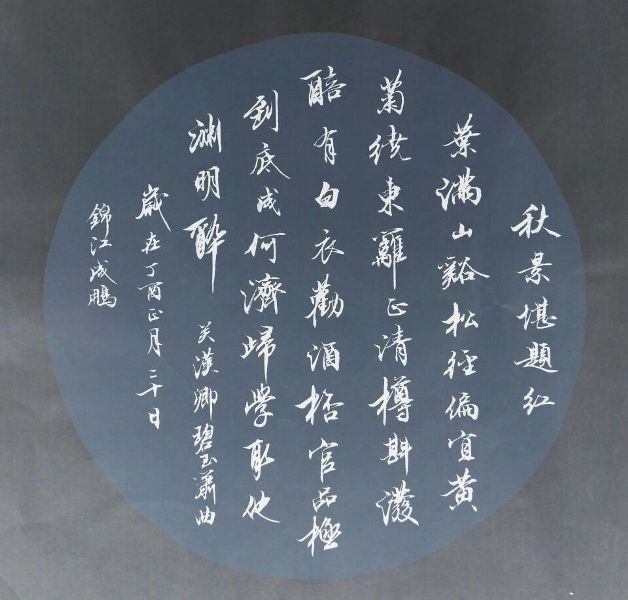 秋景堪題红
葉滿山谿松徑偏宜黄
菊绕東籬正清樽斟潑
醅有白衣勸酒桮官品極
到底成何濟歸學取他
渊明醉 关漢卿碧玉簫曲
歲在丁酉正月三十日
錦江成鵬